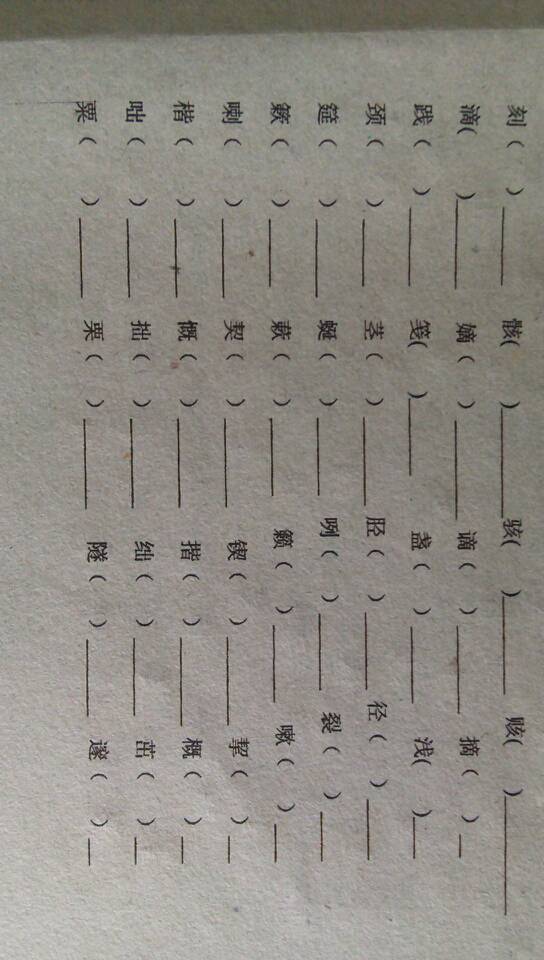 刻（ ）____ 骸( )____ 骇( )____ 赅( )____
滴( )____ 嫡（ ）____ 谪（ ）____ 摘（ ）__
践（ ）____ 笺( )____ 盏（ ）____ 浅( )__
颈（ ）____ 茎（ ）____ 胫（ ）____ 径（ ）____
筵（ ）____ 蜒（ ）____ 咧（ ）____ 裂（ ）____
簌（ ）____ 蔌（ ）____ 籁（ ）____ 嗽（ ）__
喇（ ）____ 契（ ）____ 锲（ ）____ 挈（ ）__
楷（ ）____ 慨（ ）____ 揩（ ）____ 概（ ）__
咄（ ）____ 拙（ ）____ 绌（ ）____ 茁（ ）__
粟（ ）____ 栗（ ）____ 隧（ ）____ 邃（ ）__